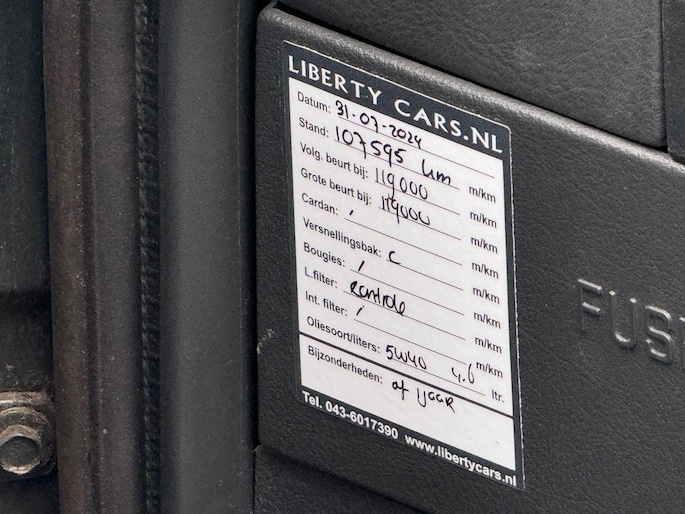 LIBERTY CARS.NL
Datum: 31-07-2024
Stand: 107595 km m/km
Volg. beurt bij: 119000 m/km
Grote beurt bij: 119000 m/km
Cardan: / m/km
Versnellingsbak: C m/km
Bougies: / m/km
L.filter: controle m/km
Int. filter: / m/km
Oliesoort/liters: 5W40 4.0 ltr.
Bijzonderheden: of 1 jaar
Tel. 043-6017390 www.libertycars.nl
FUSE